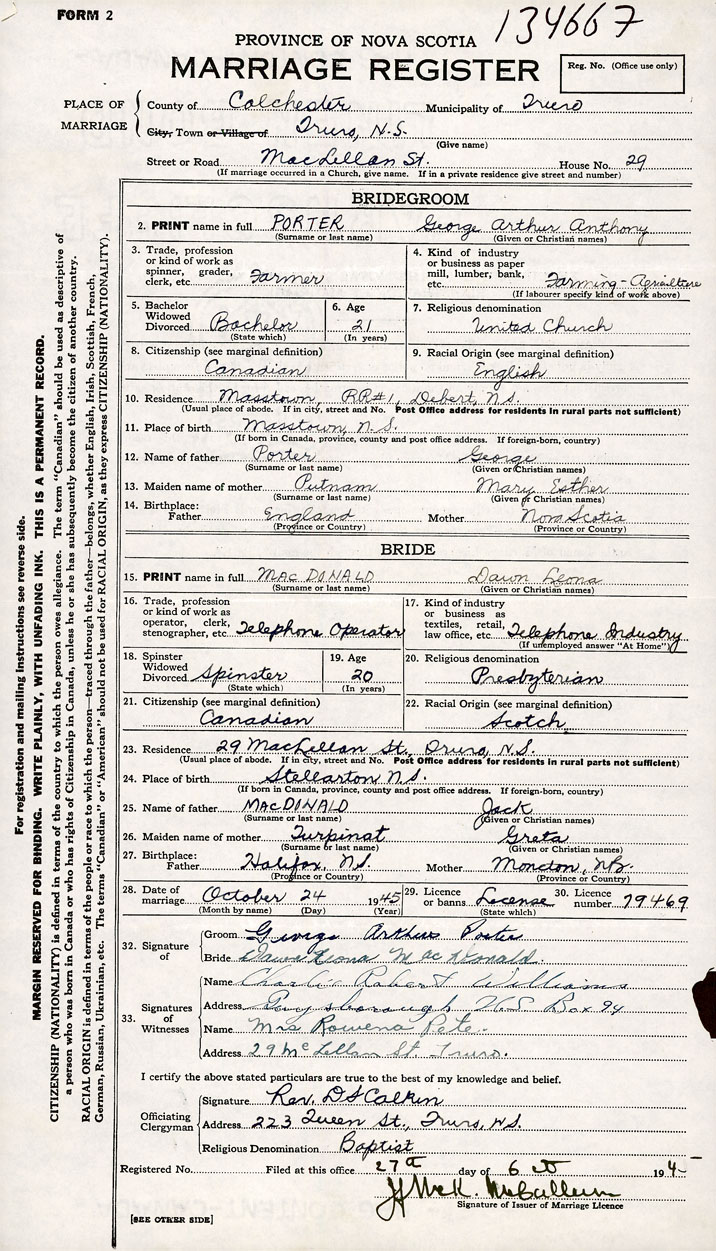 FORM 2
134667
PROVINCE OF NOVA SCOTIA
MARRIAGE REGISTER
Reg. No. (Office use only)
PLACE OF MARRIAGE
County of Colchester Municipality of Truro
City, Town or Village of Truro, N.S.
(Give name)
Street or Road MacLellan St. House No. 29
(If marriage occurred in a Church, give name. If in a private residence give street and number)
BRIDEGROOM
2. PRINT name in full PORTER George Arthur Anthony
(Surname or last name) (Given or Christian names)
3. Trade, profession or kind of work as spinner, grader, clerk, etc. Farmer
4. Kind of industry or business as paper mill, lumber, bank, etc. Farming - Agriculture
(If labourer specify kind of work above)
5. Bachelor Widowed Divorced Bachelor
(State which)
6. Age 21
(In years)
7. Religious denomination
United Church
8. Citizenship (see marginal definition)
Canadian
9. Racial Origin (see marginal definition)
English
10. Residence Masstown, RR#1, Debert, N.S.
(Usual place of abode. If in city, street and No. Post Office address for residents in rural parts not sufficient)
11. Place of birth Masstown, N.S.
(If born in Canada, province, county and post office address. If foreign-born, country)
12. Name of father Porter George
(Surname or last name) (Given or Christian names)
13. Maiden name of mother Putnam Mary Esther
(Surname or last name) (Given or Christian names)
14. Birthplace: Father England Mother Nova Scotia
(Province or Country) (Province or Country)
BRIDE
15. PRINT name in full MACDONALD Dawn Leona
(Surname or last name) (Given or Christian names)
16. Trade, profession or kind of work as operator, clerk, stenographer, etc. Telephone Operator
17. Kind of industry or business as textiles, retail, law office, etc. Telephone Industry
(If unemployed answer "At Home")
18. Spinster Widowed Divorced Spinster
(State which)
19. Age 20
(In years)
20. Religious denomination
Presbyterian
21. Citizenship (see marginal definition)
Canadian
22. Racial Origin (see marginal definition)
Scotch
23. Residence 29 MacLellan St., Truro, N.S.
(Usual place of abode. If in city, street and No. Post Office address for residents in rural parts not sufficient)
24. Place of birth Stellarton N.S.
(If born in Canada, province, county and post office address. If foreign-born, country)
25. Name of father MACDONALD Jack
(Surname or last name) (Given or Christian names)
26. Maiden name of mother Turpinat Greta
(Surname or last name) (Given or Christian names)
27. Birthplace: Father Halifax, N.S. Mother Moncton, N.B.
(Province or Country) (Province or Country)
28. Date of marriage October 24 1945
(Month by name) (Day) (Year)
29. Licence or banns License
(State which)
30. Licence number 79469
32. Signature of
Groom George Arthur Porter
Bride Dawn Leona MacDonald.
33. Signatures of Witnesses
Name Charlie Robert Williams
Address Guysborough N.S. Box 94
Name Mrs Rowena Pete.
Address 29 McLellan St. Truro.
I certify the above stated particulars are true to the best of my knowledge and belief.
Officiating Clergyman
Signature Rev. D S Calkin
Address 223 Queen St., Truro, N.S.
Religious Denomination Baptist
Registered No. Filed at this office 27th day of 194
Signature of Issuer of Marriage Licence
[SEE OTHER SIDE]
For registration and mailing instructions see reverse side.
MARGIN RESERVED FOR BINDING. WRITE PLAINLY, WITH UNFADING INK. THIS IS A PERMANENT RECORD.
CITIZENSHIP (NATIONALITY) is defined in terms of the country to which the person owes allegiance. The term "Canadian" should be used as descriptive of
a person who was born in Canada or who has rights of Citizenship in Canada, unless he or she has subsequently become the citizen of another country.
RACIAL ORIGIN is defined in terms of the people or race to which the person—traced through the father—belongs, whether English, Irish, Scottish, French,
German, Russian, Ukrainian, etc. The terms "Canadian" or "American" should not be used for RACIAL ORIGIN, as they express CITIZENSHIP (NATIONALITY).